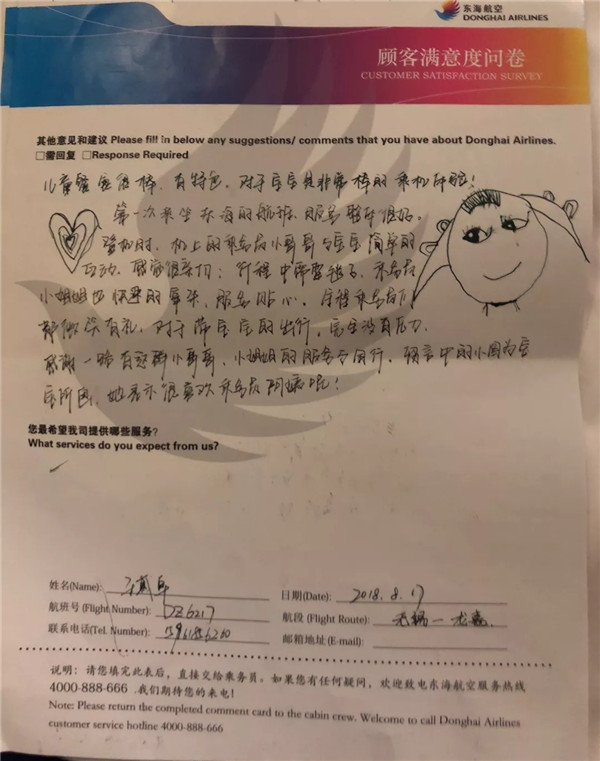 东海航空
DONGHAI AIRLINES
顾客满意度问卷
CUSTOMER SATISFACTION SURVEY
其他意见和建议 Please fill in below any suggestions/ comments that you have about Donghai Airlines.
□需回复 □Response Required
儿童餐食很棒,有特色。对于宝宝是非常棒的乘机体验!
第一次乘坐东海的航班,服务整体很好。
登机时,机上的乘务员小哥哥与宝宝简单的
互动,感觉很亲切;行程中需要毯子,乘务员
小姐姐也快速的拿来,服务贴心。全程乘务员们
都彬彬有礼,对于带宝宝的出行,完全没有压力
感谢一路有您们小哥哥、小姐姐的服务与同行,留言中的小图为宝
宝所画,她表示很喜欢乘务员阿姨呢!
您最希望我司提供哪些服务?
What services do you expect from us?
姓名(Name):
日期(Date): 2018.8.17
航班号(Flight Number): DZ6217
航段 (Flight Route): 无锡一
联系电话(Tel. Number):
邮箱地址(E-mail):
说明:请您填完此表后,直接交给乘务员。如果您有任何疑问,欢迎致电东海航空服务热线
4000-888-666 .我们期待您的来电!
Note: Please return the completed comment card to the cabin crew. Welcome to call Donghai Airlines
customer service hotline 4000-888-666